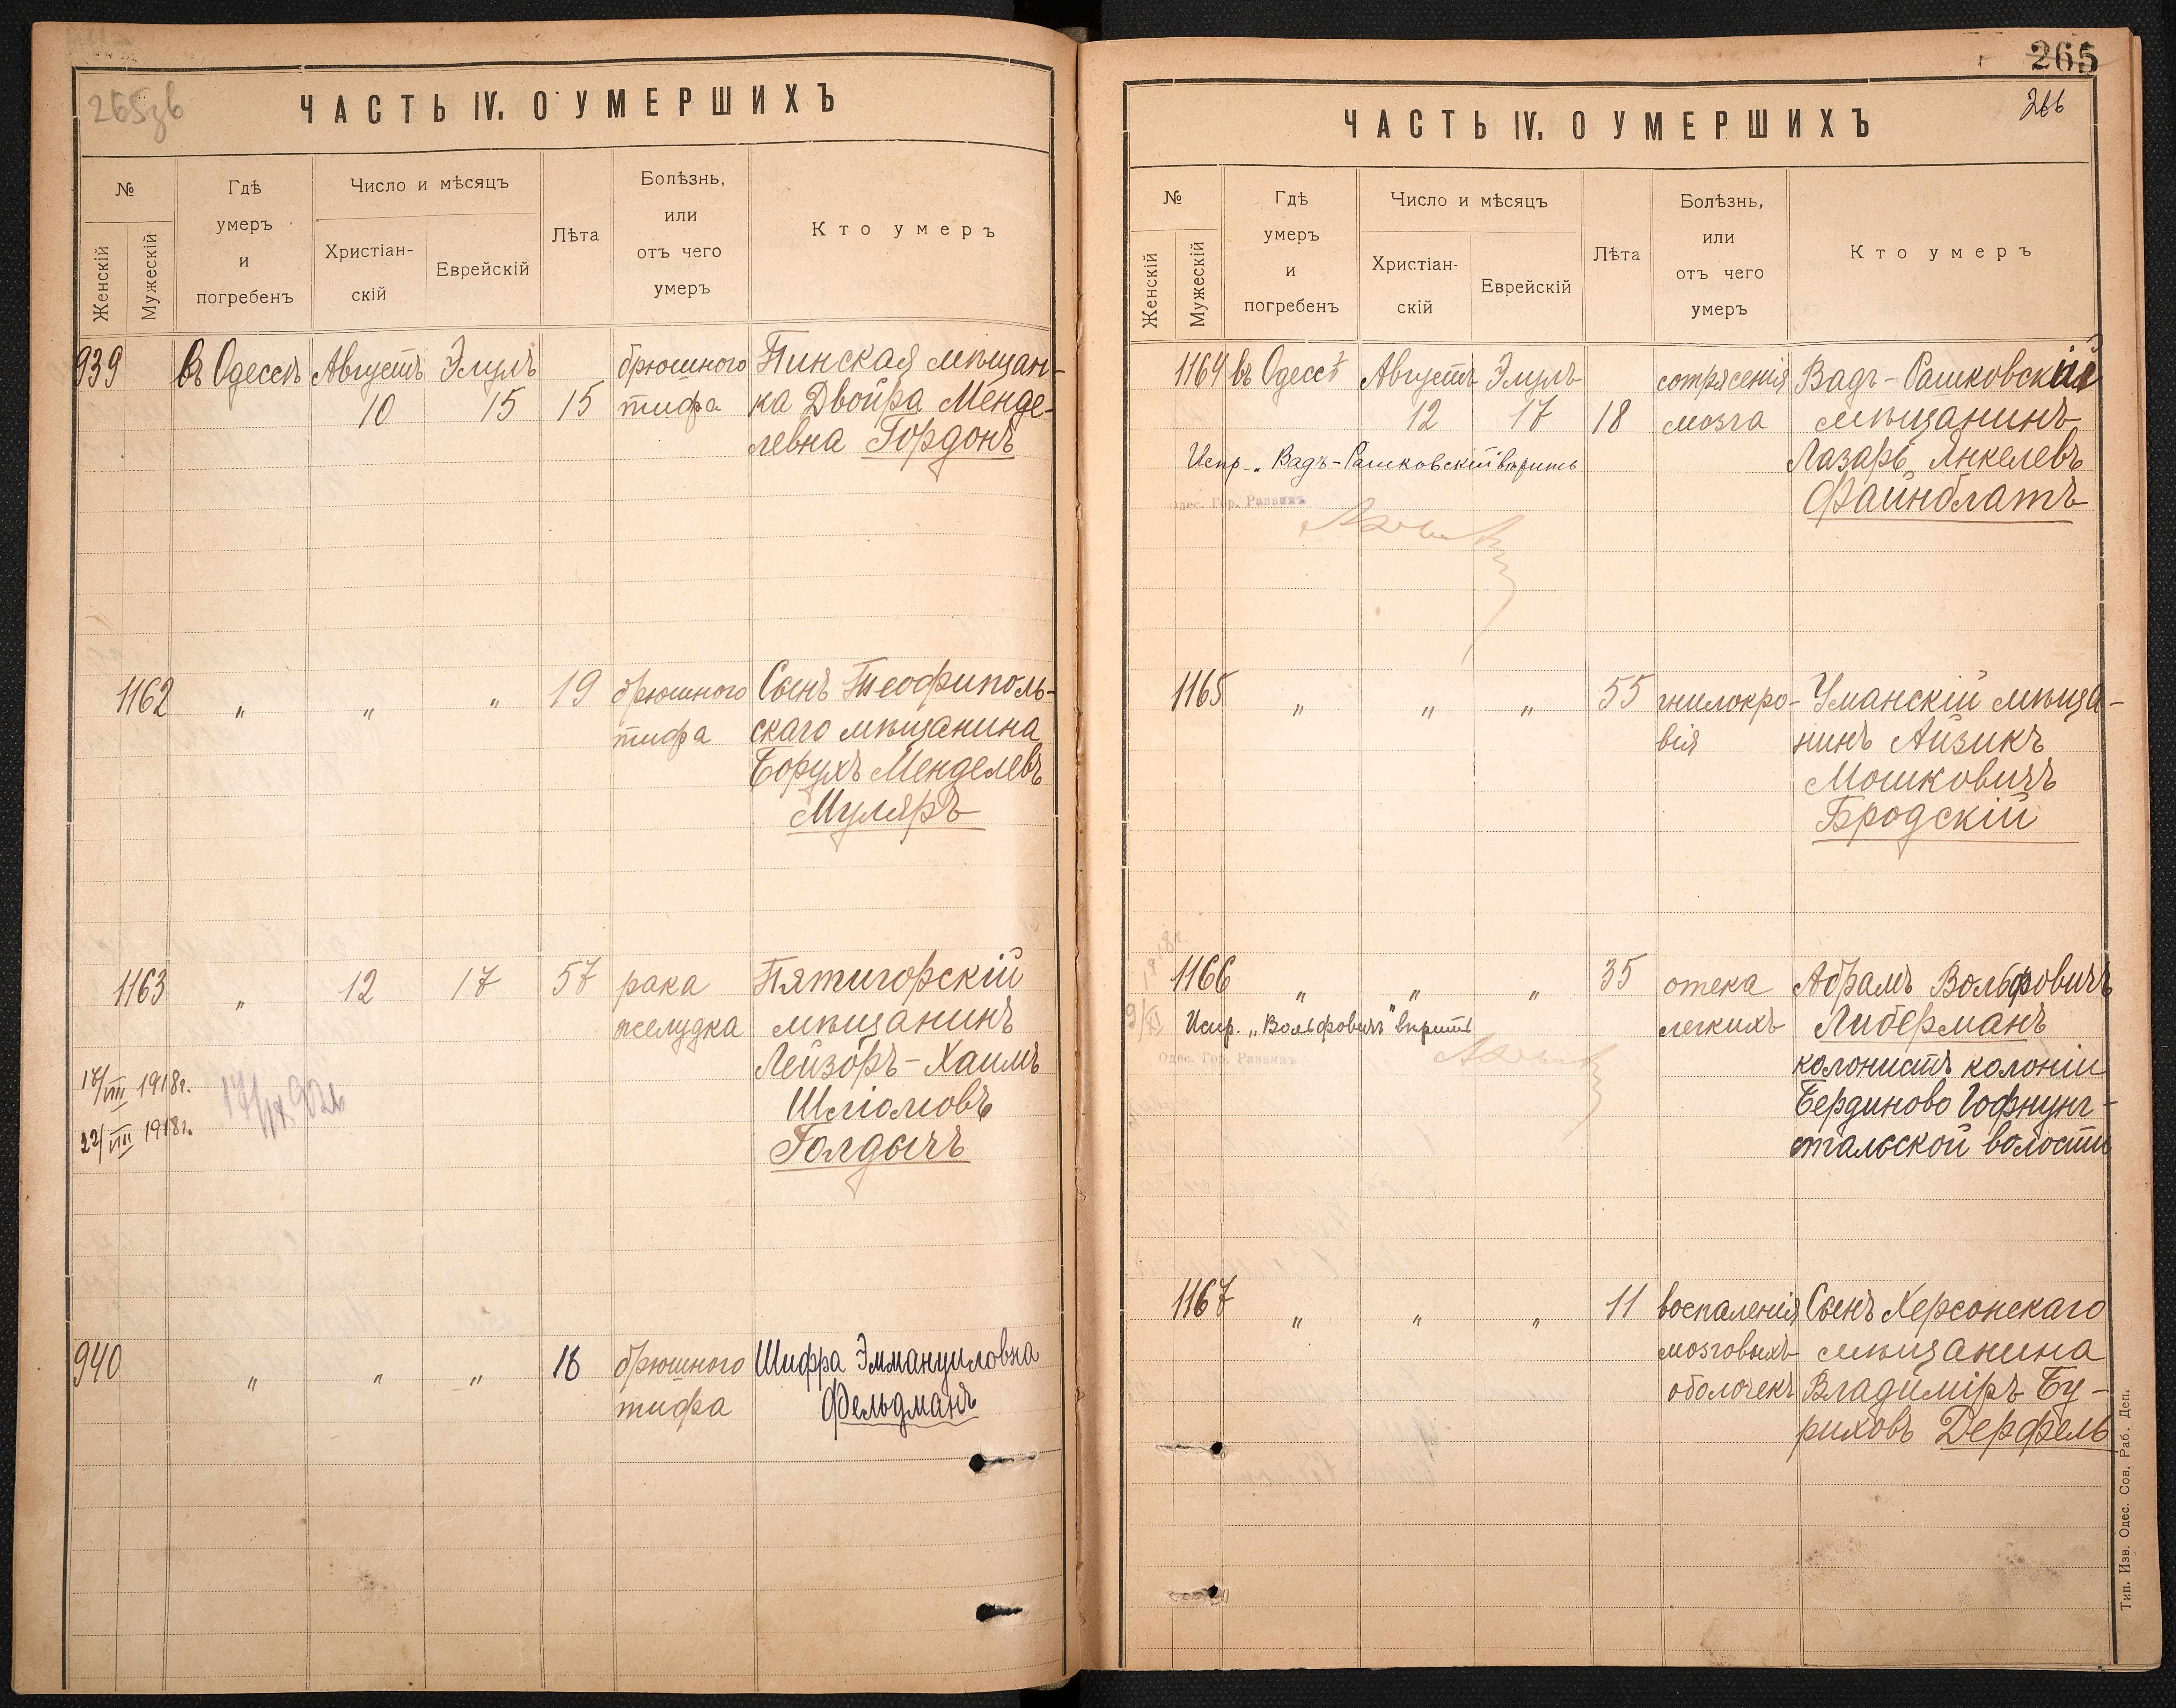 265зв
ЧАСТЬ IV. О УМЕРШИХЪ
№
Женскій
Мужескій
Гдѣ
умеръ
и
погребенъ
Число и мѣсяцъ
Христіан-
скій
Еврейскій
Лѣта
Болѣзнь,
или
отъ чего
умеръ
Кто умеръ
939 въ Одессѣ Августъ Элулъ брюшного Пинская мѣщан-
10 15 15 тифа ка Двойра Менде-
левна Гордонъ
1162 " " " 19 брюшного Сынъ Теофиполь-
тифа скаго мѣщанина
Борухъ Менделевъ
Муляръ
1163 " 12 17 57 рака Пятигорскій
желудка мѣщанинъ
Лейзоръ-Хаимъ
Шліомовъ
Голдычъ
17/VIII 1918г.
22/VIII 1918г.
940 " " " 18 брюшного Шифра Эммануиловна
тифа Фельдманъ
265
266
ЧАСТЬ IV. О УМЕРШИХЪ
№
Женскій
Мужескій
Гдѣ
умеръ
и
погребенъ
Число и мѣсяцъ
Христіан-
скій
Еврейскій
Лѣта
Болѣзнь,
или
отъ чего
умеръ
Кто умеръ
1164 въ Одессѣ Августъ Элулъ сотрясенія Вадъ-Рашковскій
12 17 18 мозга мѣщанинъ
Испр. „Вадъ-Рашковскій" вѣрить Лазарь Янкелевъ
Одес. Гор. Раввинъ Файнблатъ
1165 " " " 55 гнилокро- Уманскій мѣща-
вія нинъ Айзикъ
Мошковичъ
Бродскій
1166 " " " 35 отека Абрамъ Вольфовичъ
Испр. „Вольфовичъ" вѣрить легкихъ Либерманъ
Одес. Гор. Раввинъ
колонистъ колоніи
Бердиново Гофнунг-
стальской волости
1167 " " " 11 воспаленія Сынъ Херсонскаго
мозговыхъ мѣщанина
оболочекъ Владиміръ Бу-
риховъ Дерфель
Тип. Изв. Одес. Сов. Раб. Деп.